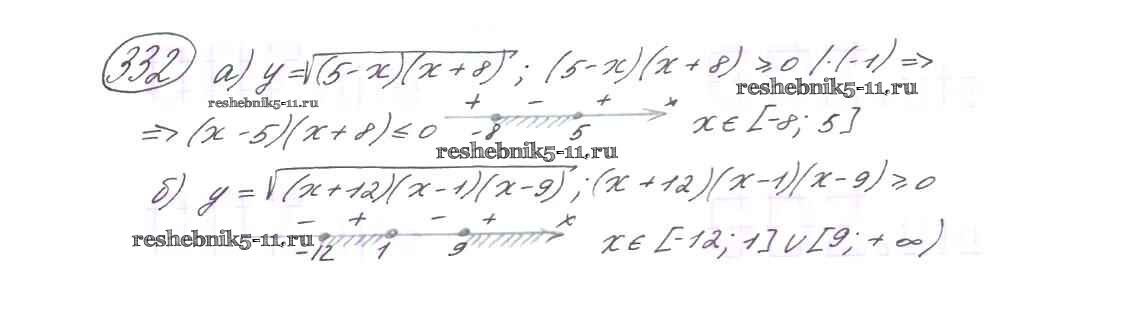 332 а) y=√(5-x)(x+8) ; (5-x)(x+8) ≥0 /·(-1) =>
reshebnik5-11.ru reshebnik5-11.ru
+ - + x
=> (x-5)(x+8) ≤ 0 -8 5 x∈[-8; 5]
reshebnik5-11.ru
б) y = √(x+12)(x-1)(x-9) ; (x+12)(x-1)(x-9) ≥0
- + - + x
reshebnik5-11.ru -12 1 9 x∈[-12; 1]∪[9; +∞)